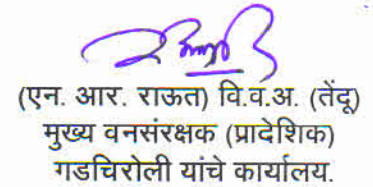 (एन. आर. राऊत) वि.व.अ. (तेंदू)
मुख्य वनसंरक्षक (प्रादेशिक)
गडचिरोली यांचे कार्यालय.